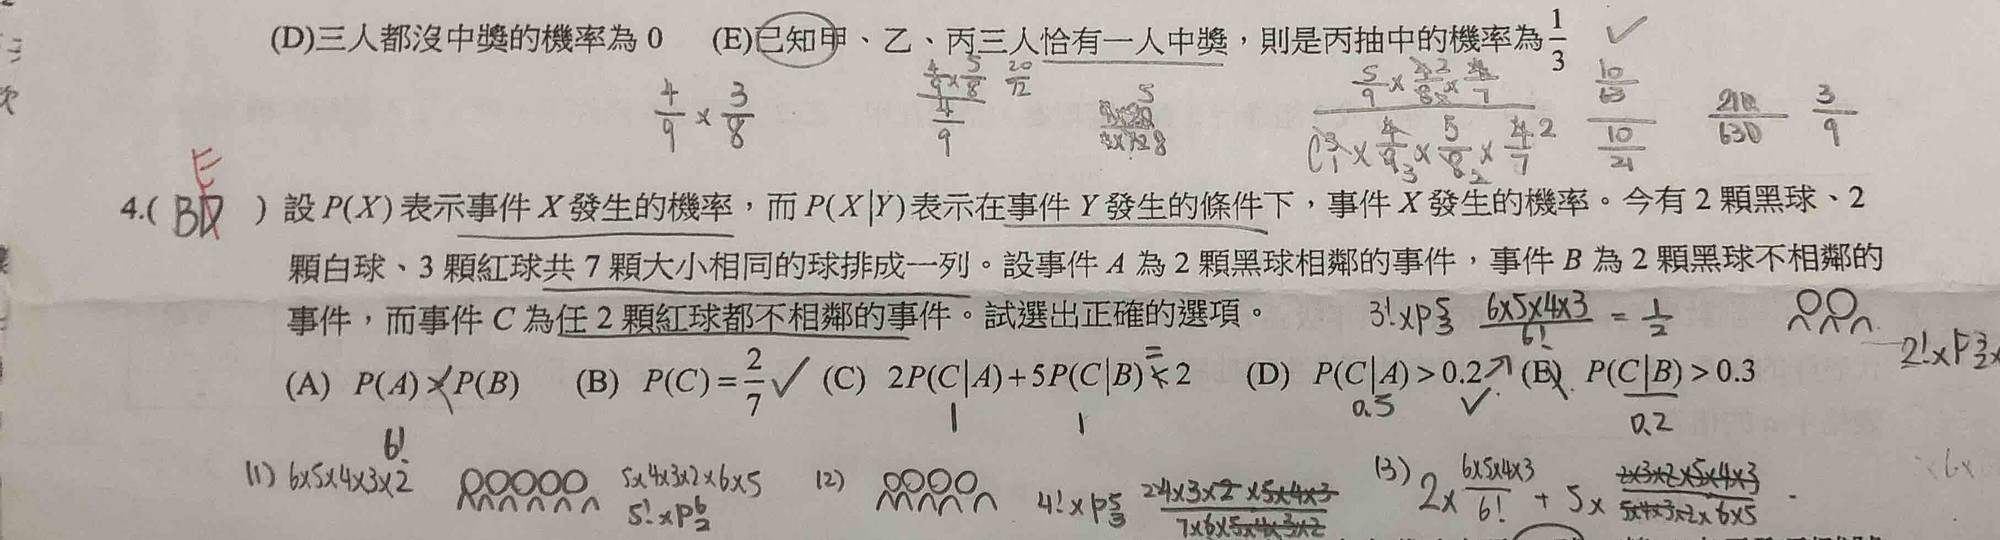 (D)三人都沒中獎的機率為 0 (E)已知甲、乙、丙三人恰有一人中獎，則是丙抽中的機率為 1/3 ✓
4/9 × 3/8
20/72
10/63
10/21
210/630 3/9
E
4.( BD ) 設 P(X) 表示事件 X 發生的機率，而 P(X|Y) 表示在事件 Y 發生的條件下，事件 X 發生的機率。今有 2 顆黑球、2
顆白球、3 顆紅球共 7 顆大小相同的球排成一列。設事件 A 為 2 顆黑球相鄰的事件，事件 B 為 2 顆黑球不相鄰的
事件，而事件 C 為任 2 顆紅球都不相鄰的事件。試選出正確的選項。 3!×P⁵₃ 6×5×4×3/6! = 1/2
2!×P³₂×
(A) P(A) > P(B) (B) P(C) = 2/7 ✓ (C) 2P(C|A)+5P(C|B) < 2 (D) P(C|A) > 0.2 (E) P(C|B) > 0.3
= 1 1 0.5 ✓ 0.2
6!
(1) 6×5×4×3×2 5×4×3×2×6×5 (2) 4!×P⁵₃ 24×3×2×5×4×3/7×6×5×4×3×2 (3) 2× 6×5×4×3/6! + 5× 2×3×2×5×4×3/5×4×3×2×6×5
5!×P⁶₂